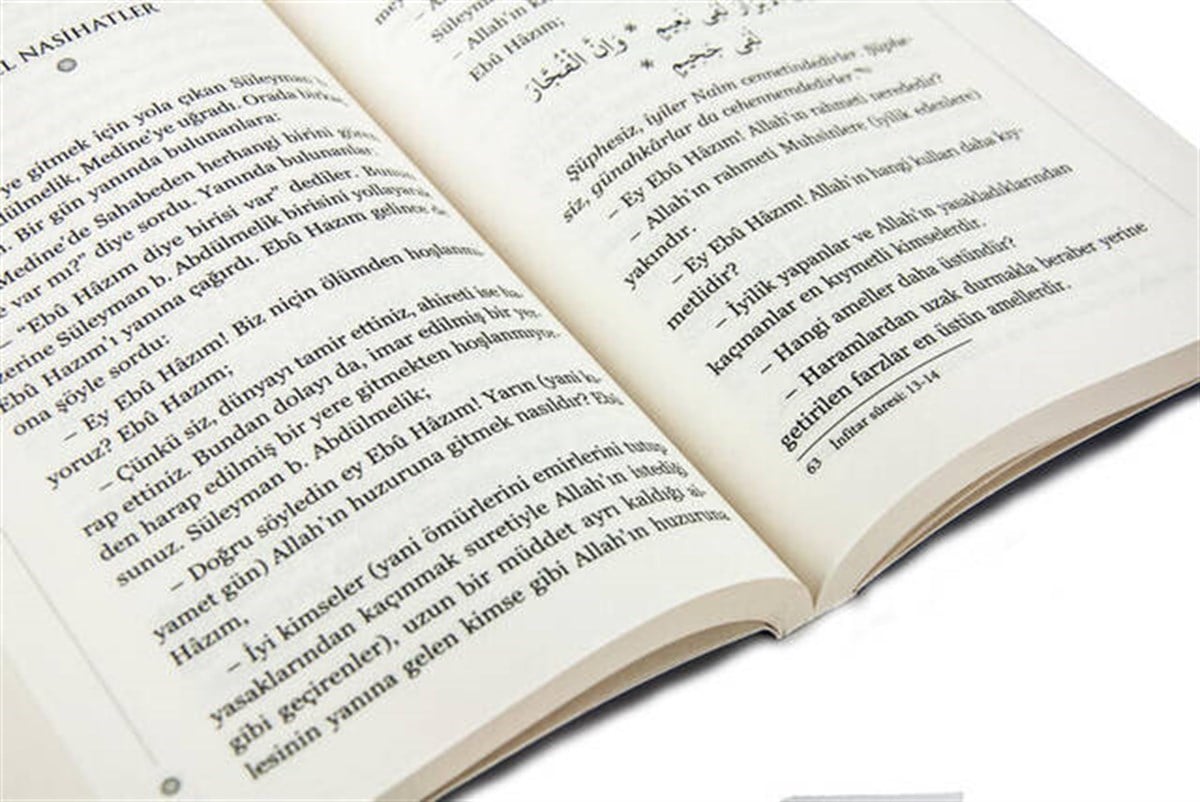 NASİHATLER
ye gitmek için yola çıkan Süleyman
dülmelik, Medine'ye uğradı. Orada
Bir gün yanında bulunanlara:
Medine'de Sahabeden herhangi birini
var mı?" diye sordu. Yanında bulunanlar
– "Ebû Hâzım diye birisi var" dediler. Bunun
zerine Süleyman b. Abdülmelik birisini yollayarak
Ebû Hazım'ı yanına çağırdı. Ebû Hazım gelince
ona şöyle sordu:
– Ey Ebû Hâzım! Biz niçin ölümden hoşlanmı-
yoruz? Ebû Hazım;
– Çünkü siz, dünyayı tamir ettiniz, ahireti ise ha-
rap ettiniz. Bundan dolayı da, imar edilmiş bir yer-
den harap edilmiş bir yere gitmekten hoşlanmıyor-
sunuz. Süleyman b. Abdülmelik;
– Doğru söyledin ey Ebû Hâzım! Yarın (yani kı-
yamet gün) Allah'ın huzuruna gitmek nasıldır? Ebû
Hâzım,
– İyi kimseler (yani ömürlerini emirlerini tutup
yasaklarından kaçınmak suretiyle Allah'ın istediği
gibi geçirenler), uzun bir müddet ayrı kaldığı ai-
lesinin yanına gelen kimse gibi Allah'ın huzuruna
– Allah'ın
Ebû Hâzım:
لَفِي نَعِيمٍ * وَإِنَّ الْفُجَّارَ
لَفِي جَحِيمٍ *
Şüphesiz, iyiler Naim cennetindedirler Şüphe-
siz, günahkârlar da cehennemdedirler
– Ey Ebû Hâzım! Allah'ın rahmeti nerededir?
– Allah'ın rahmeti Muhsinlere (iyilik edenlere)
yakındır.
– Ey Ebû Hâzım! Allah'ın hangi kulları daha kıy-
metlidir?
– İyilik yapanlar ve Allah'ın yasakladıklarından
kaçınanlar en kıymetli kimselerdir.
– Hangi ameller daha üstündür?
– Haramlardan uzak durmakla beraber yerine
getirilen farzlar en üstün amellerdir.
63 İnfitar sûresi: 13-14